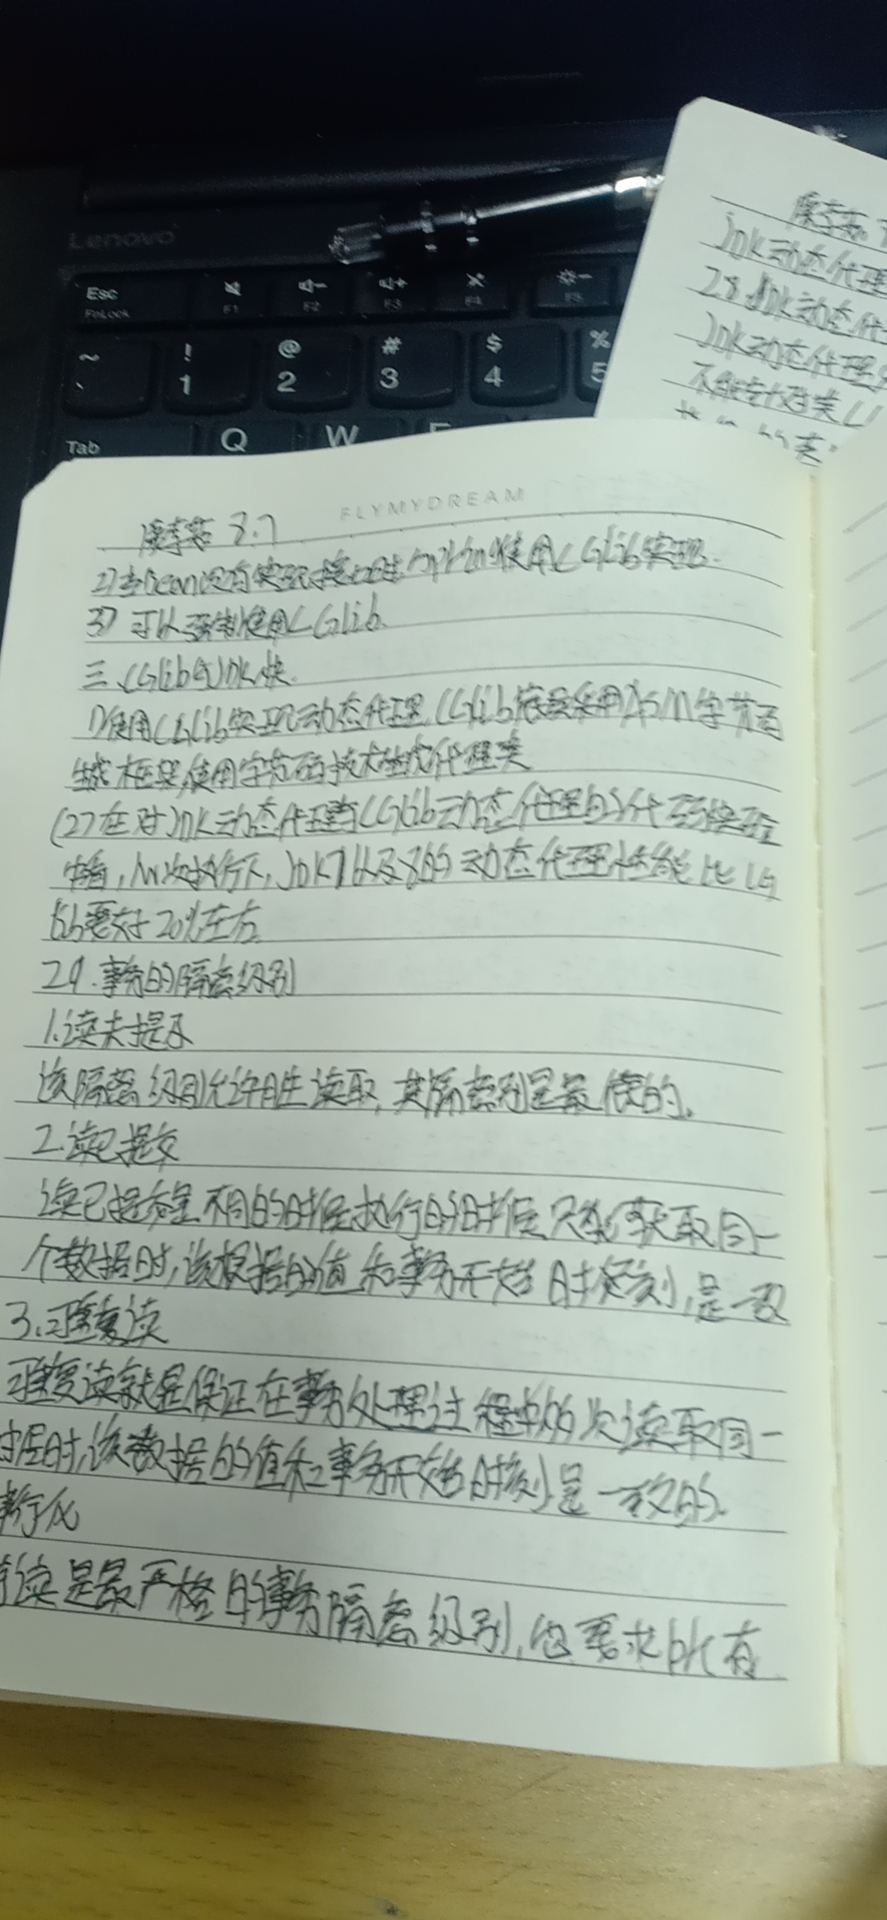 Lenovo
Esc
FnLock
F1
F2
F3
F4
F5
~
`
!
1
@
2
#
3
$
4
%
5
Tab
Q
W
JDK动态代理
28.JDK动态代
JDK动态代理
FLYMYDREAM
8.7
2)当Bean没有实现接口时 使用CGlib实现.
3)可以强制使用CGlib.
三.CGlib JDK快.
1)使用CGlib实现动态代理,CGlib底层采用ASM字节码
生成框架,使用字节码技术生成代理类
(2)在对JDK动态代理与CGlib动态代理的 代码实验
中看,1W次执行下,JDK7以及8的动态代理性能比CG
lib要好20%左右
29.事务的隔离级别
1.读未提及
该隔离级别允许 读取,其隔离 别是最低的.
2.读已提交
读已提交是不同的时候执行的时候只能获取同一
个数据时,该根据的值和事务开始时 刻,是一致
3.可重复读
可重复读就是保证在事务处理过程中 次读取同一
时,该数据的值和事务开始时刻是一致的
行化
读是最严格的事务隔离级别,他要求 有